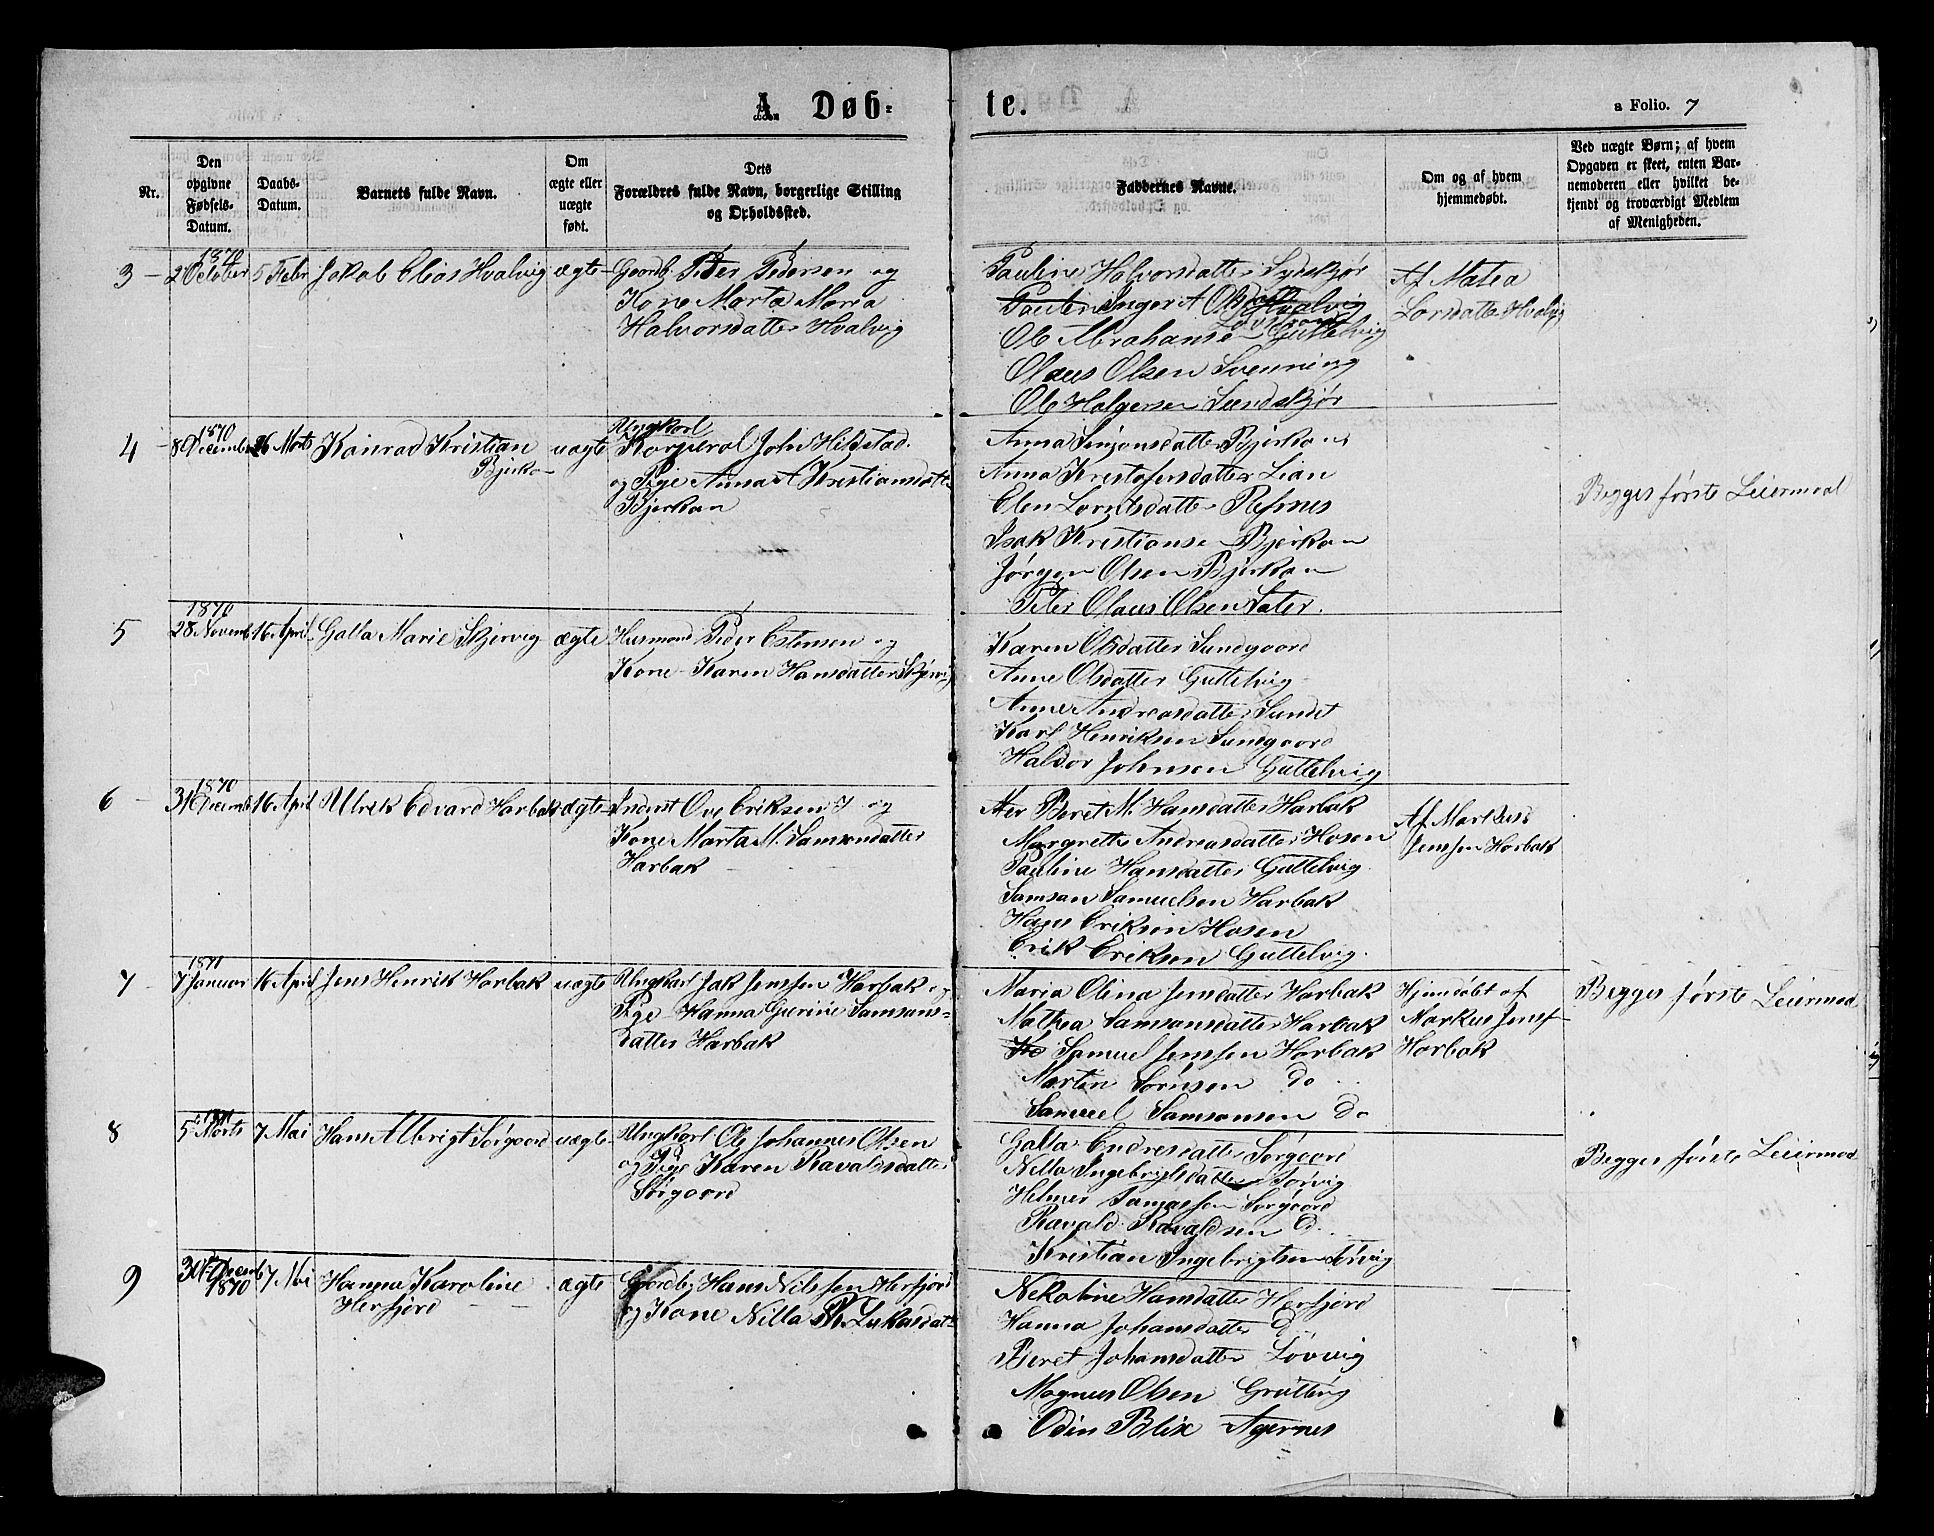 A. Døb-
te.
a Folio. 7
Nr.
Den
opgivne
Fødsels-
Datum.
Daabs-
Datum.
Barnets fulde Navn.
Om
ægte eller
uægte
født.
Dets
Forældres fulde Navn, borgerlige Stilling
og Opholdssted.
Faddernes Navne.
Om og af hvem
hjemmedøbt.
Ved uægte Børn; af hvem
Opgaven er skeet, enten Bar-
nemoderen eller hvilket be-
kjendt og troværdigt Medlem
af Menigheden.
3
1870
2 October
5 Febr
Jakob Elias Hvalvig
ægte
Gaardb. Peder Pedersen og
Kone Marta Maria
Halvorsdatter Hvalvig
Pauline Halvorsdatter Sydskjør
Paulin Inger A Olsdatt Hvalvig
Ole Abrahamse Guttelvig
Olaus Olsen Svenning
Ole Holgersen Sundskjør
Af Matea
Lorsdatter Hvalvig
4
1870
8 December
26 Marts
Konrad Kristian
Bjerko
uægte
Ungkarl
Korperal John Hikstad
og Pige Anna A Kristiansdatt
Bjerkan
Anna Simonsdatter Bjerkan
Anna Kristofersdatter Lian
Elen Lorntsdatter Refsnes
Isak Kristianse Bjerkan
Jørgen Olsen Bjerkan
Peter Olaus Olsen Sater.
Begges første Leiermaal
5
1870
28 Novemb
16 April
Galla Marie Skjervig
ægte
Husmand Peder Estensen og
Kone Karen Hansdatter Skjervig
Karen Olsdatter Sundgaard
Anne Olsdatter Guttelvig
Anne Andreasdatter Sundet
Karl Henriksen Sundgaard
Haldor Johnsen Guttelvig
6
1870
31 Decemb
16 April
Ulrik Edvard Harbak
ægte
Inderst Ove Eriksen og
Kone Marta M. Samsondatter
Harbak
Beret M. Hansdatter Harbak
Margrette Andreasdatter Hosen
Pauline Hansdatter Guttelvig
Samson Samuelsen Harbak
Hans Eriksen Hosen
Erik Eriksen Guttelvig.
Af Markus
Jenssen Harbak
7
1871
7 Januar
16 April
Jens Henrik Harbak
uægte
Ungkarl Jak Jenssen Harbak og
Pige Hanna Gurine Samsons-
datter Harbak
Maria Olina Jensdatter Harbak
Mathea Samsonsdatter Harbak
Samuel Jenssen Harbak
Martin Sørnsen Do
Samuel Samsonsen Do
Hjemdøbt af
Markus Jens
Harbak
Begges første Leiermaal
8
1871
5 Marts
7 Mai
Hans Albrigt Sørgaard
uægte
Ungkarl Ole Johannes Olsen
og Pige Karen Ravaldsdatter
Sørgaard
Galla Endresdatter Sørgaard
Nilla Ingebrigtsdatter Sørvig
Helmer Tomassen Sørgaard
Ravald Ravaldsen Do
Kristian Ingebrigtsen Sørvig
Begges første Leiermaal
9
30 Decemb
1870
7 Mai
Hanna Karoline
Herfjord
ægte
Gaardb. Hans Nilssen Herfjord
og Kone Nilla R. Lukasdatt
Nekoline Hansdatter Herfjord
Hanna Johansdatter Do
Beret Johansdatter Løvvig
Magnus Olsen Grøtting
Odin Blix Agernes